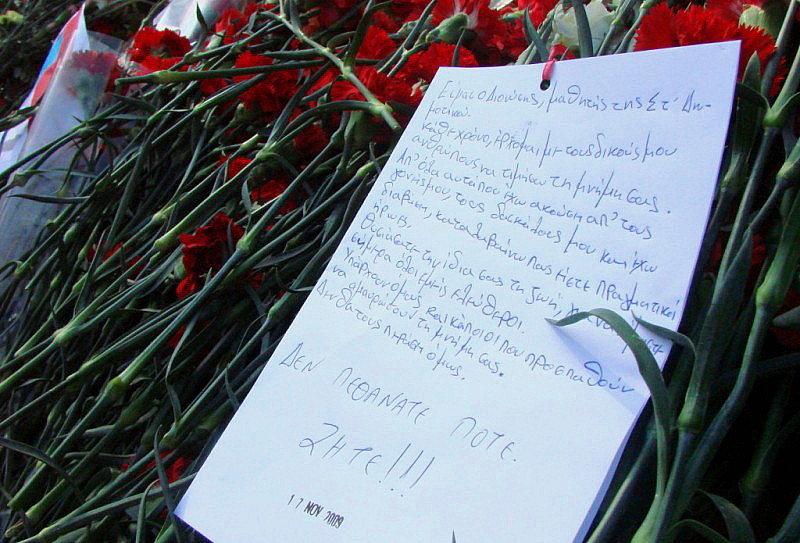 Είμαι ο Διονύσης, μαθητής της Στ' Δη-
μοτικού.
Κάθε χρόνο, έρχομαι με τους δικούς μου
ανθρώπους να τιμήσω τη μνήμη σας.
Απ' όλα αυτά που έχω ακούσει απ' τους
γονείς μου, τους δασκάλους μου και έχω
διαβάσει, καταλαβαίνω πως είστε πραγματικοί
ήρωες.
Θυσιάσατε την ίδια σας τη ζωή, για να είμαστε
σήμερα όλοι εμείς ελεύθεροι.
Υπάρχουν όμως και κάποιοι που προσπαθούν
να αμαυρώσουν τη μνήμη σας.
Δεν θα τους περάσει όμως.
ΔΕΝ ΠΕΘΑΝΑΤΕ ΠΟΤΕ.
ΖΗΤΕ!!!
17 NOV 2009